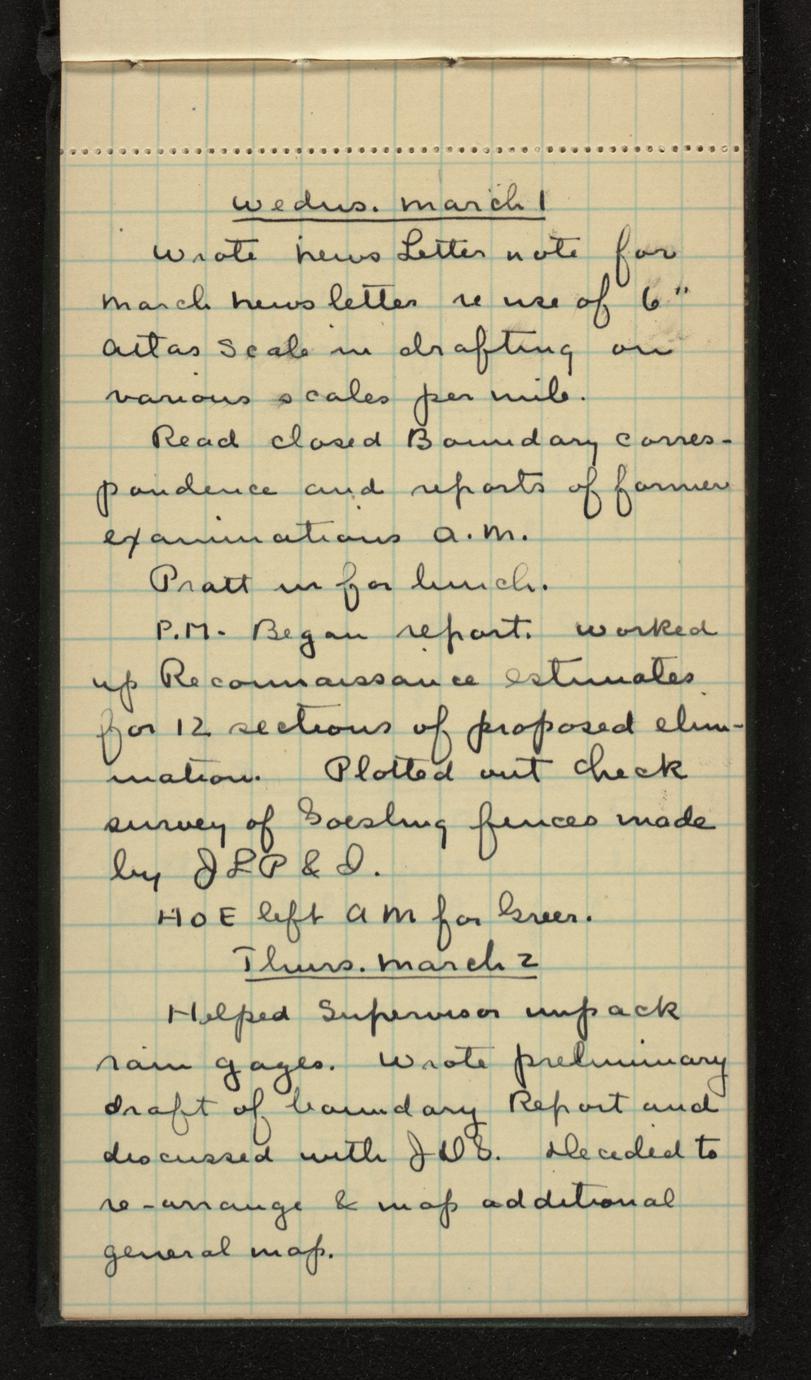 Wednes. March 1
Wrote News Letter note for
March News letter re use of 6"
Atlas Scale in drafting on
various scales per mile.
Read closed Boundary corres-
pondence and reports of former
examinations A.M.
Pratt in for lunch.
P.M. Began report. Worked
up Reconnaissance estimates
for 12 sections of proposed elim-
ination. Plotted out check
survey of Goesling fences made
by JLP & I.
HOE left AM for Greer.
Thurs. March 2
Helped Supervisor unpack
rain gages. Wrote preliminary
draft of boundary Report and
discussed with Decided to
re-arrange & map additional
general map.